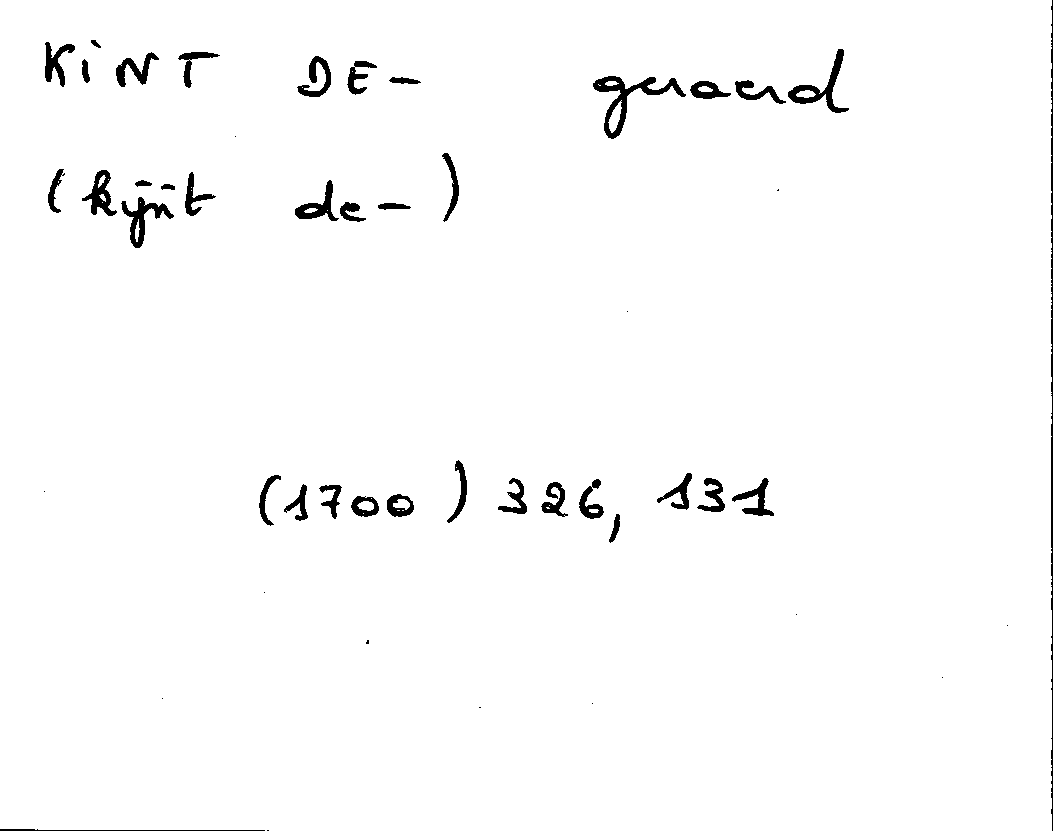 KiNT DE- geraerd
(kijnt de-)
(1700) 326, 131